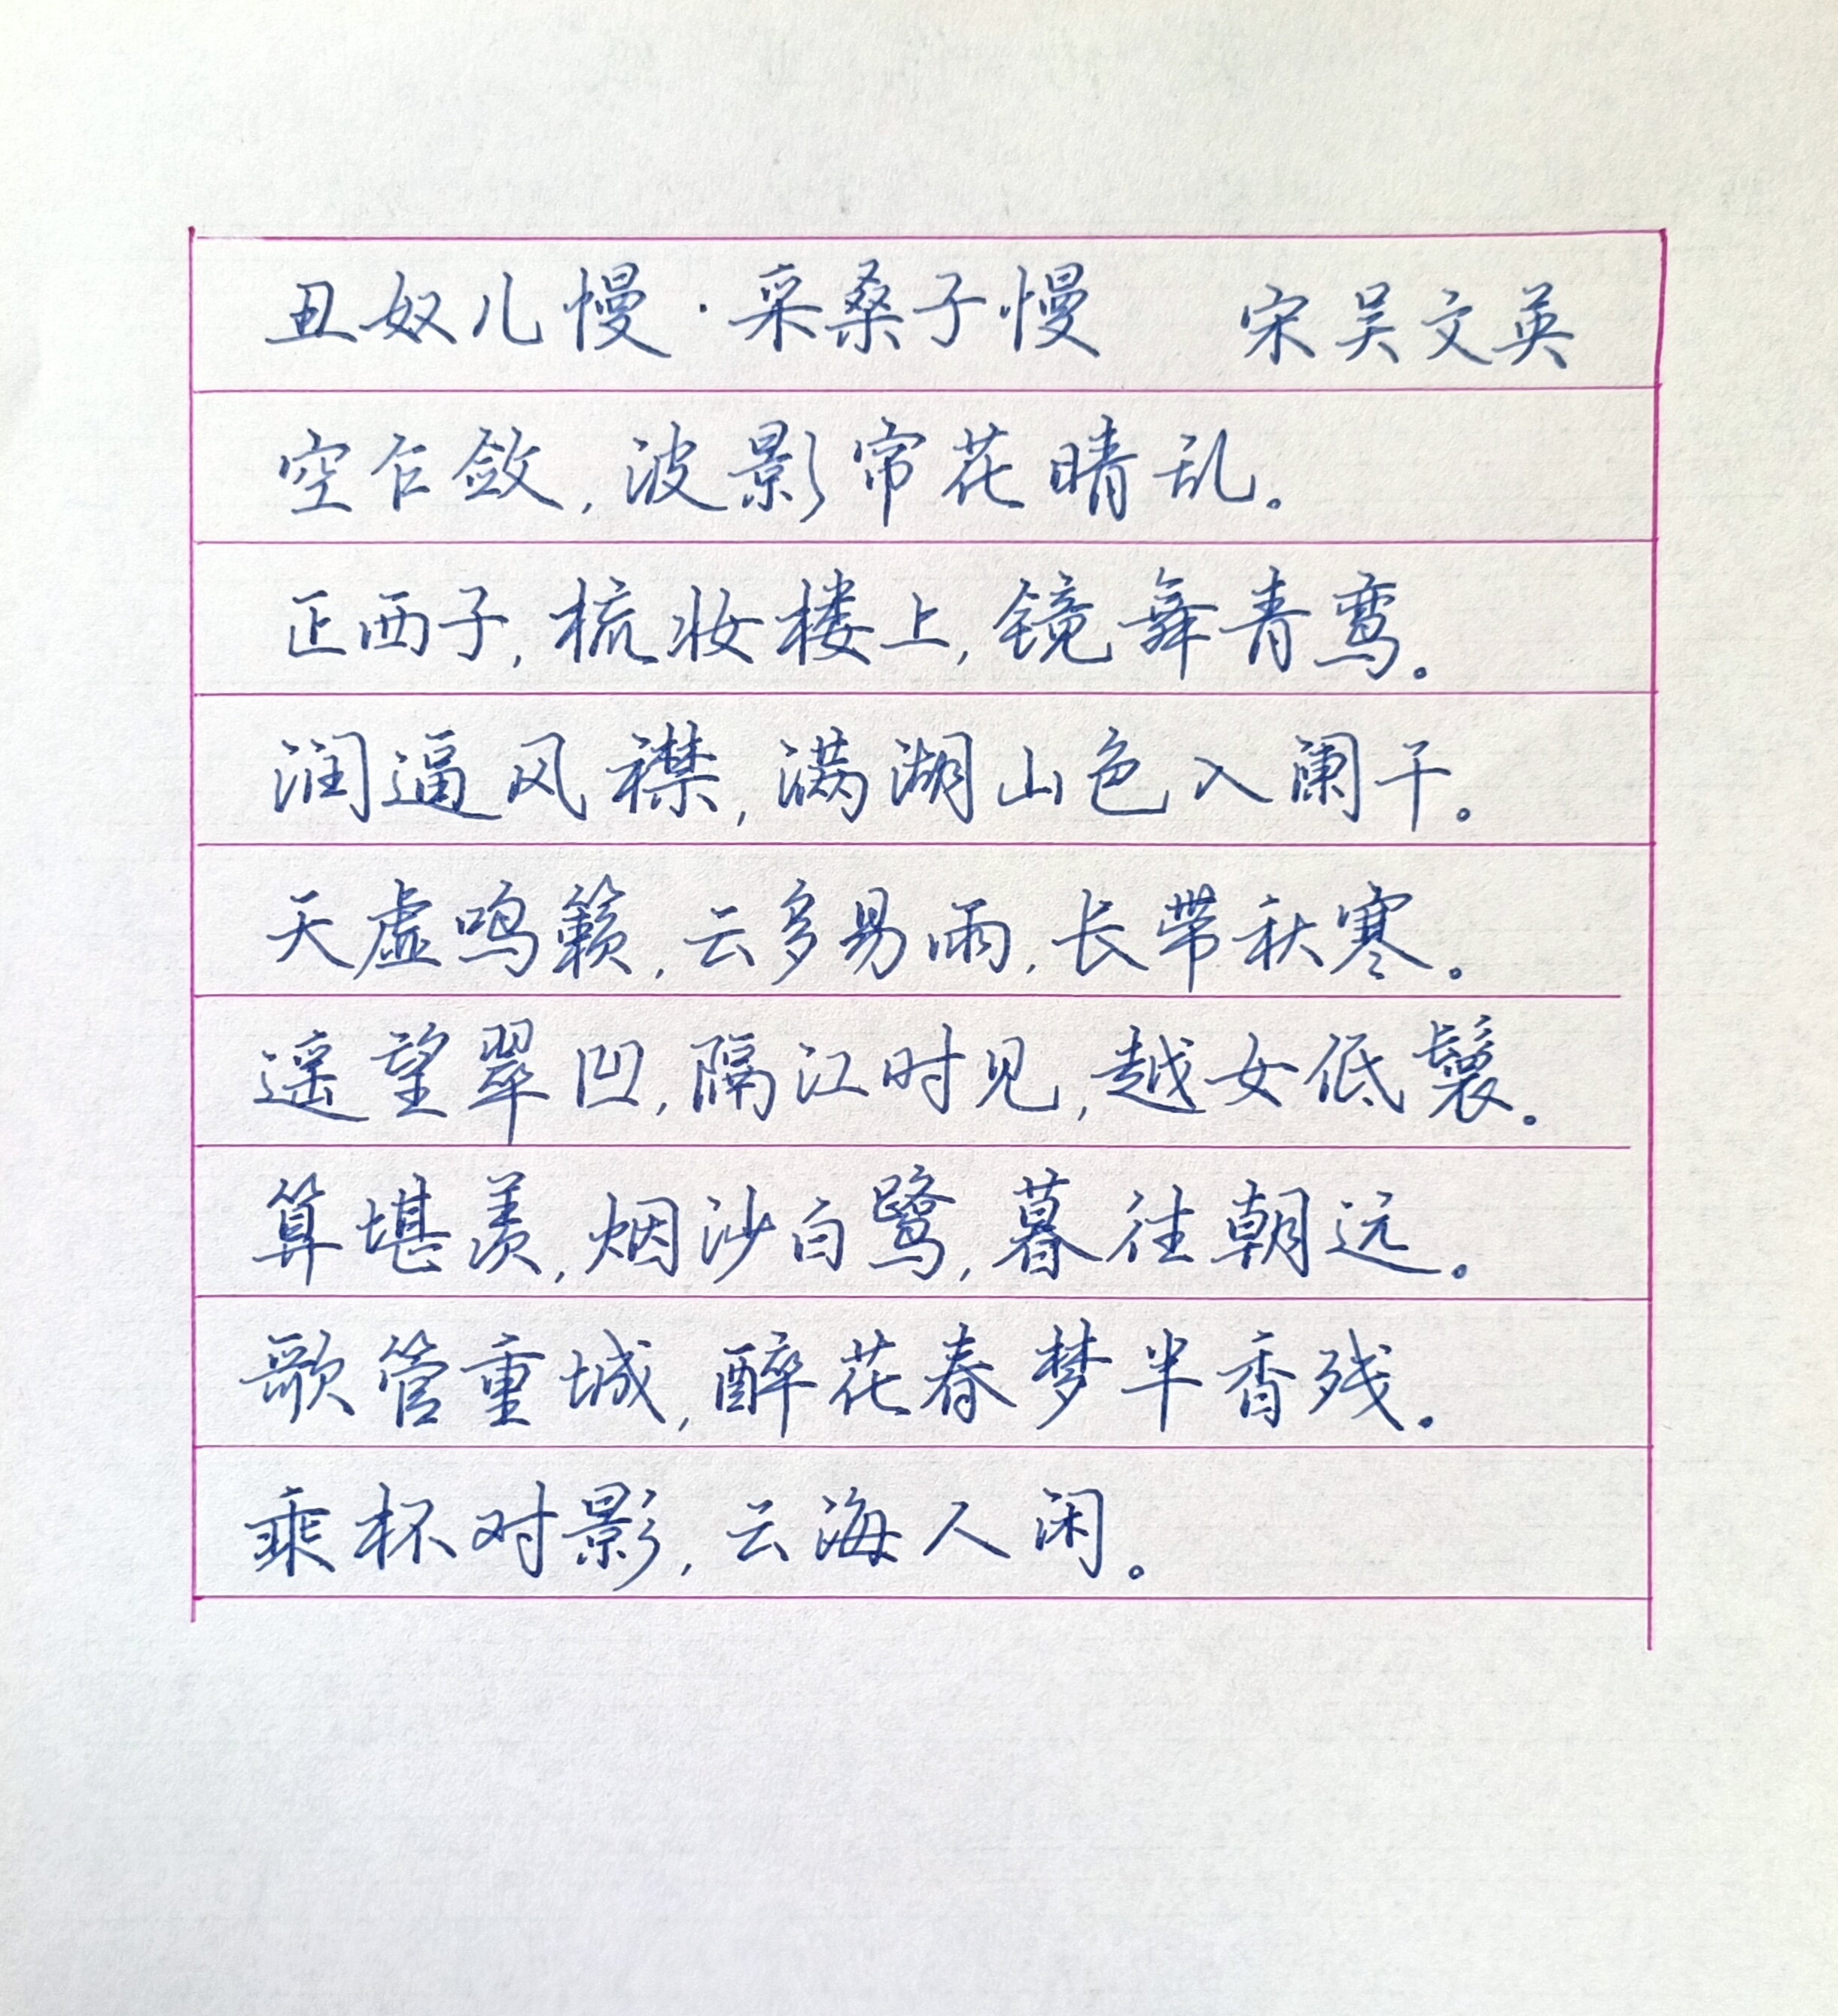 丑奴儿慢·采桑子慢 宋吴文英
空乍敛,波影帘花晴乱。
正西子,梳妆楼上,镜舞青鸾。
润逼风襟,满湖山色入阑干。
天虚鸣籁,云多易雨,长带秋寒。
遥望翠凹,隔江时见,越女低鬟。
算堪羡,烟沙白鹭,暮往朝远。
歌管重城,醉花春梦半香残。
乘杯对影,云海人闲。